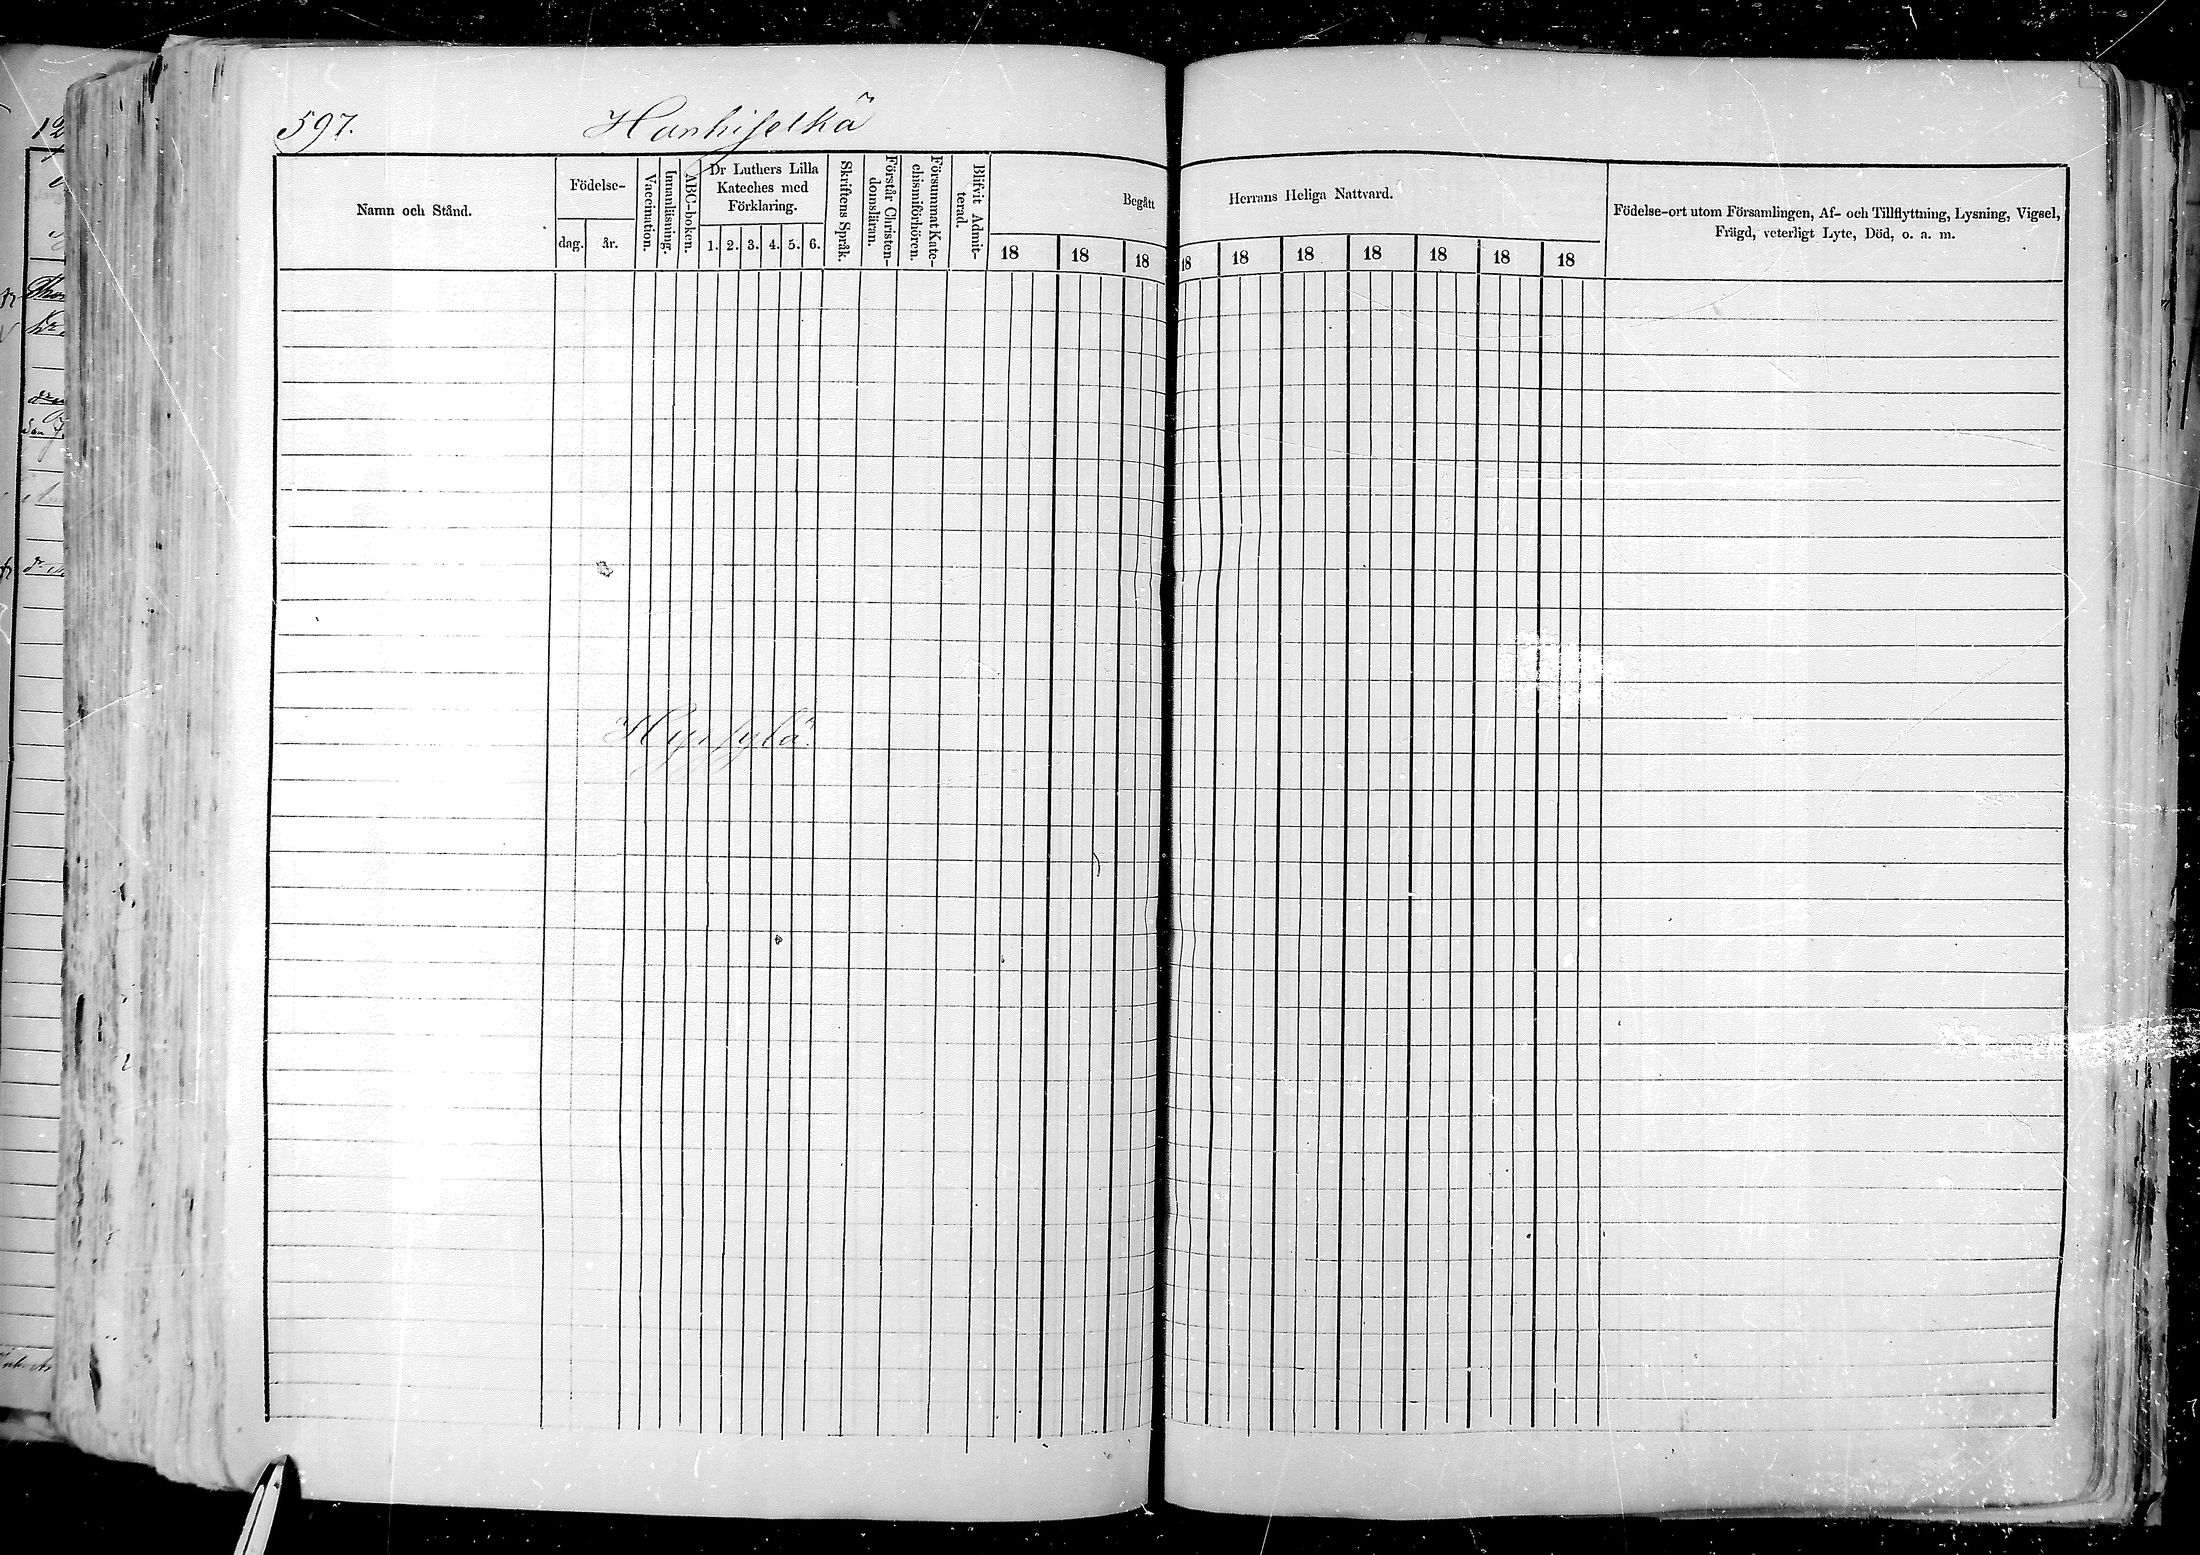 597.
Hanhiselkä
Namn och Stånd.
Födelse-
dag.
år.
Vaccination.
Innanläsning.
ABC-boken.
Dr Luthers Lilla
Kateches med
Förklaring.
1. 2. 3. 4. 5. 6.
Skriftens Språk.
Förstår Christen-
domsläran.
Försummat Kate-
chismiförhören.
Blifvit Admit-
terad.
Begått
18 18 18
Herrans Heliga Nattvard.
18 18 18 18 18 18 18
Födelse-ort utom Församlingen, Af- och Tillflyttning, Lysning, Vigsel,
Frägd, veterligt Lyte, Död, o. a. m.